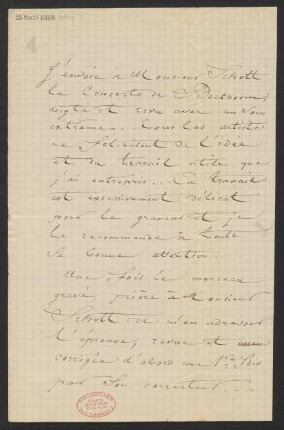 J'envoie à Monsieur Schott
le Concerto de Beethoven,
doigté et revu avec un soin
extrême. Tous les artistes
me félicitent de l'idée
et du travail utile que
j'ai entrepris... Ce travail
est excessivement délicat
pour le graveur et je
le recommande à toute
sa bonne attention.
Une fois le morceau
gravé, prière à Monsieur
Schott de m'en adresser
l'épreuve, revue et
corrigée d'abord une 1re fois
par son correcteur :